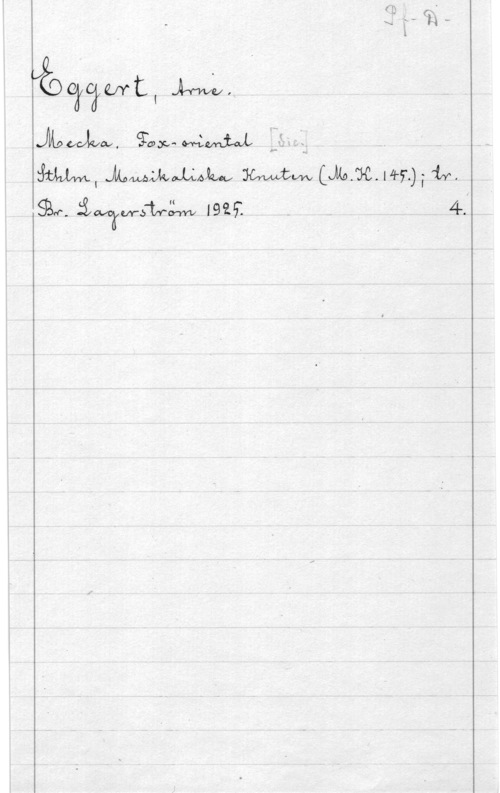 Pf-D-
Eggert, Arne.
Mecka. Fox-oriental [Sic.]
Sthlm, Musikaliska Knuten (M.K. 145.); tr.
Br. Lagerström 1925. 4.